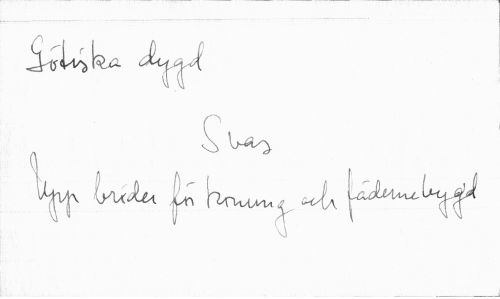 Götiska dygd
Svas
Upp bröder för konung och fädernebygd